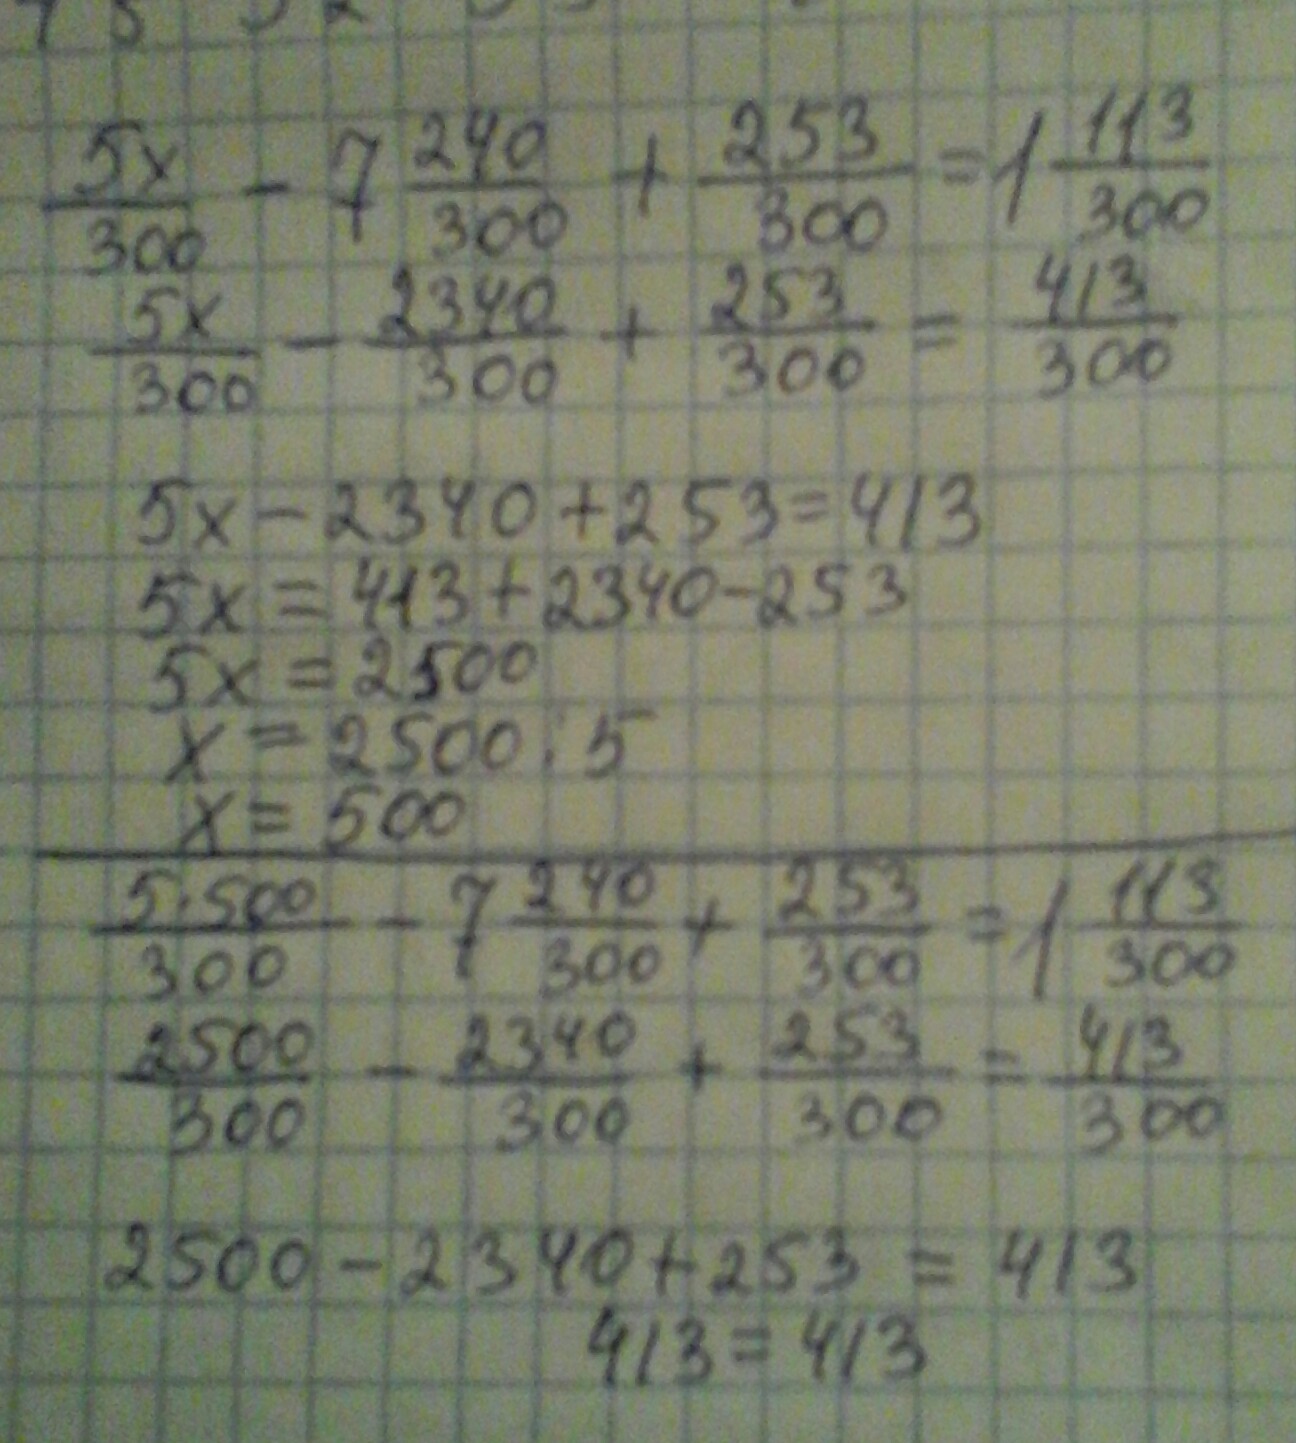 5x/300 - 7 240/300 + 253/300 = 1 113/300
5x/300 - 2340/300 + 253/300 = 413/300
5x - 2340 + 253 = 413
5x = 413 + 2340 - 253
5x = 2500
x = 2500 : 5
x = 500
5·500/300 - 7 240/300 + 253/300 = 1 113/300
2500/300 - 2340/300 + 253/300 = 413/300
2500 - 2340 + 253 = 413
413 = 413